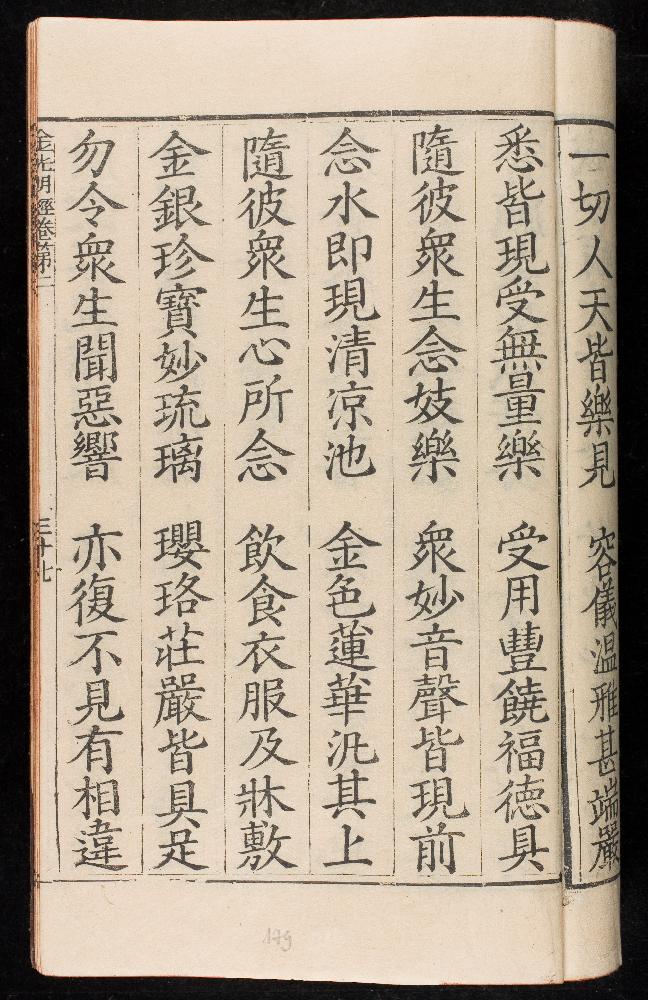 一切人天皆樂見 容儀溫雅甚端嚴
悉皆現受無量樂 受用豐饒福德具
隨彼衆生念妓樂 衆妙音聲皆現前
念水即現清凉池 金色蓮華汎其上
隨彼衆生心所念 飲食衣服及牀敷
金銀珍寶妙琉璃 瓔珞莊嚴皆具足
勿令衆生聞惡響 亦復不見有相違
金光明經卷第二 三十七
179